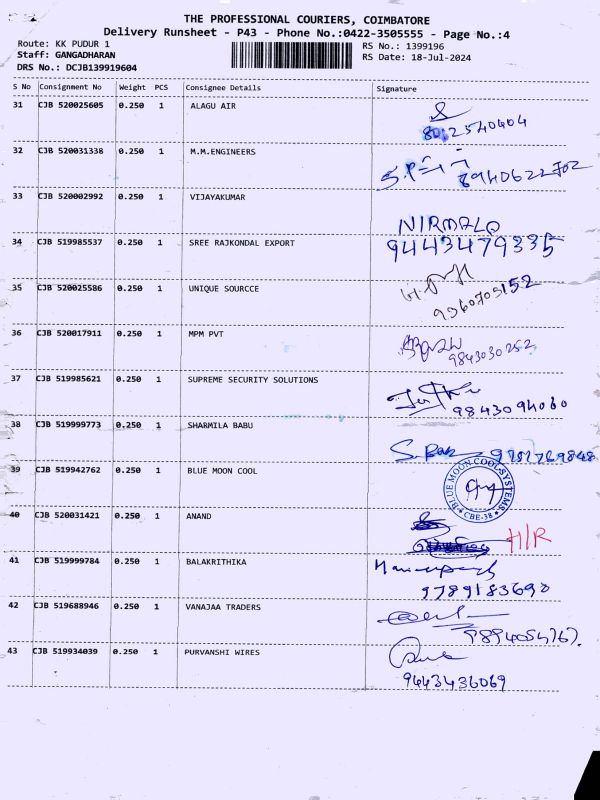 THE PROFESSIONAL COURIERS, COIMBATORE
Delivery Runsheet - P43 - Phone No.:0422-3505555 - Page No.:4
Route: KK PUDUR 1
RS No.: 1399196
Staff: GANGADHARAN
RS Date: 18-Jul-2024
DRS No.: DCJB139919604
S No Consignment No Weight PCS Consignee Details Signature
31 CJB 520025605 0.250 1 ALAGU AIR
2540404
32 CJB 520031338 0.250 1 M.M.ENGINEERS
8940622702
33 CJB 520002992 0.250 1 VIJAYAKUMAR
NIRMALA
34 CJB 519985537 0.250 1 SREE RAJKONDAL EXPORT
9443479335
35 CJB 520025586 0.250 1 UNIQUE SOURCCE
9360703152
36 CJB 520017911 0.250 1 MPM PVT
9843030252
37 CJB 519985621 0.250 1 SUPREME SECURITY SOLUTIONS
9843094060
38 CJB 519999773 0.250 1 SHARMILA BABU
39 CJB 519942762 0.250 1 BLUE MOON COOL
BLUE MOON COOL SYSTEMS
CBE-38
40 CJB 520031421 0.250 1 ANAND
H/R
41 CJB 519999784 0.250 1 BALAKRITHIKA
9789183690
42 CJB 519688946 0.250 1 VANAJAA TRADERS
43 CJB 519934039 0.250 1 PURVANSHI WIRES
9443436069